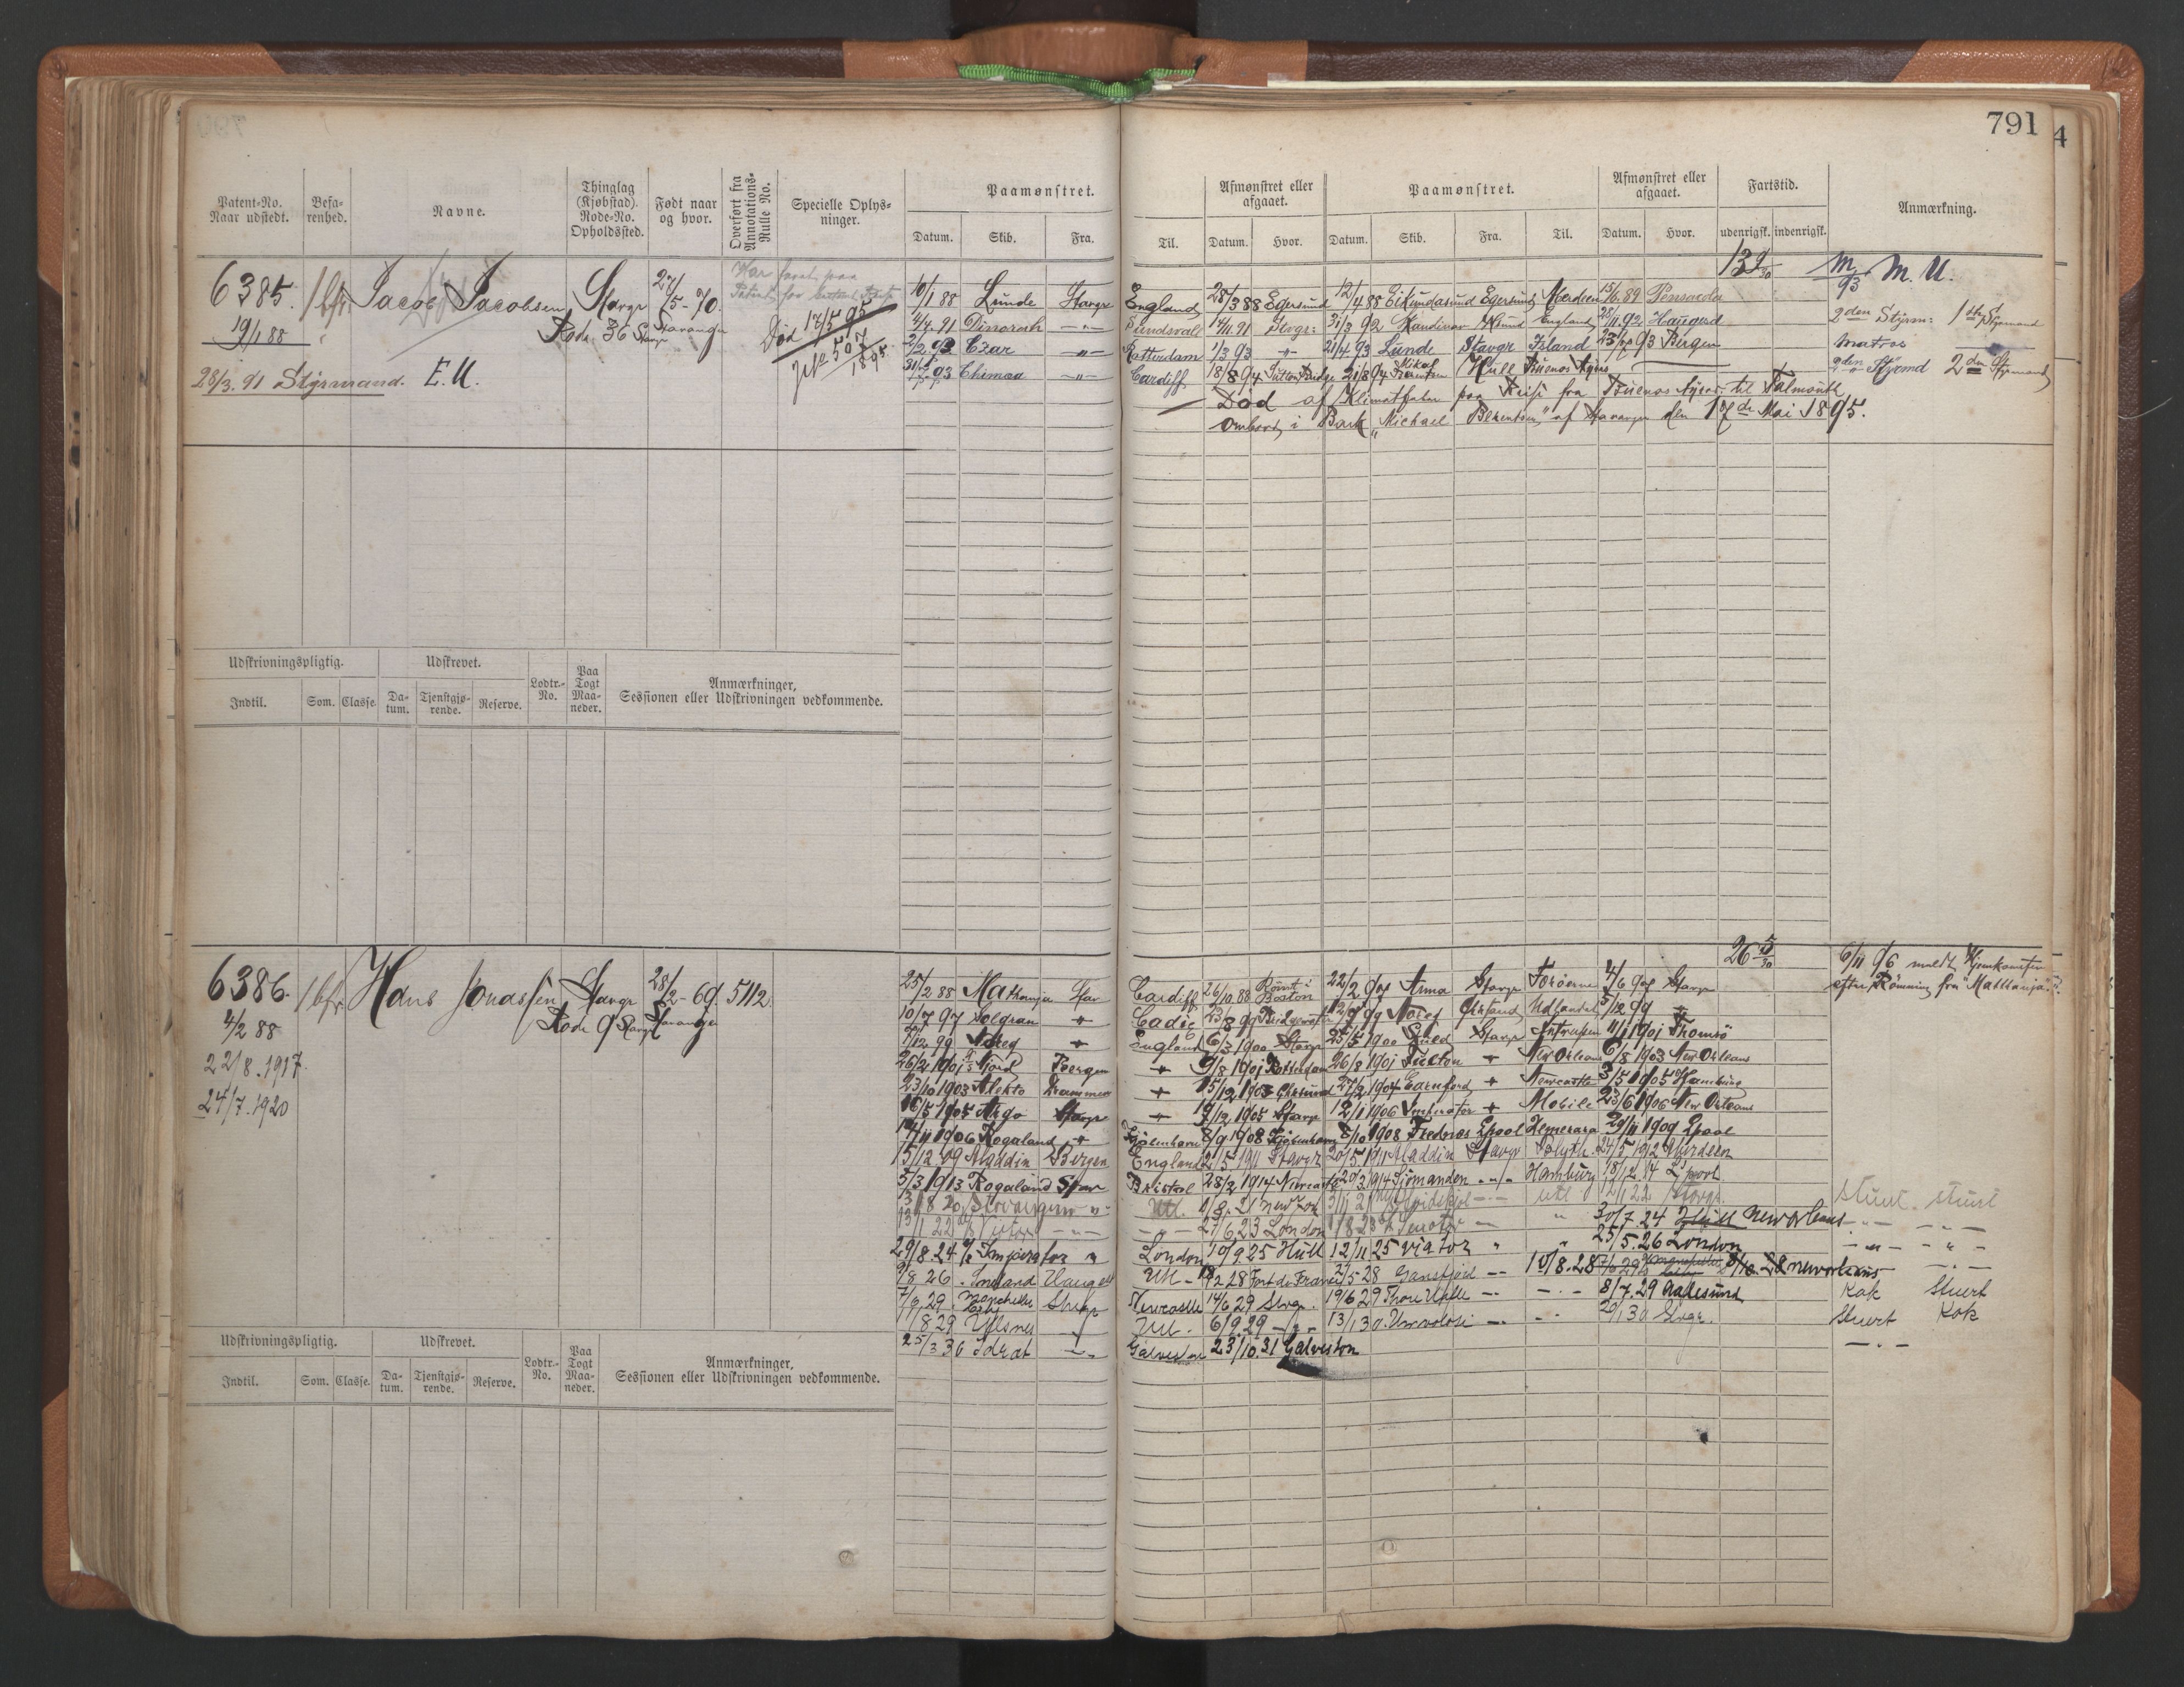 791
4
Patent-No. Naar udstedt.
Befarenhed.
Navne.
Thinglag (Kjøbstad). Rode-No. Opholdssted.
Født naar og hvor.
Overført fra Annotations-Rulle No.
Specielle Oplysninger.
Paamønstret.
Datum. Skib. Fra. Til.
Afmønstret eller afgaaet.
Datum. Hvor.
Paamønstret.
Datum. Skib. Fra. Til.
Afmønstret eller afgaaet.
Datum. Hvor.
Fartstid.
udenrigsk. indenrigsk.
Anmærkning.
6385. 1 bfr Jacob Jacobsen Stavgr 27/5-70.
19/1 88 Rode 36 Stavgr Stavanger
28/3. 91 Styrmand. E.U.
Har faret paa
Død 17/5 95
507
1895
10/1 88 Lunde Stavgr England 28/3 88 Egersund 12/4 88 Eikundasund Egersund 15/6 89 Pensacola
M. M. U.
93
4/7. 91 -"- Sundsvall 14/11 91 Stvgr: 31/3 92 England 92 Haugesd
2den Styrm: 1ste Styrmand
2/2 93 Czar -"- Rotterdam 1/3 93 -"- 21/4 93 Lunde Stavgr Island 93 Bergen
Matros
93 Chimæra -"- Cardiff 18/8 94 21/8 94 Hull Buenos Ayres
2den Styrmd 2den Styrmand
Død af Klimatfeber paa Reise fra Buenos Ayres til Falmouth
ombord i Bark "Michael Berentsen" af Stavanger den 17de Mai 1895.
Udskrivningspligtig.
Indtil. Som. Classe.
Udskrevet.
Datum. Tjenstgjørende. Reserve.
Lodtr.-No.
Paa Togt Maaneder.
Anmærkninger, Sessionen eller Udskrivningen vedkommende.
6386. 1 bfr Hans Jonassen Stavgr 28/2-69. 5112
4/2 88 Rode 9 Stavgr Stavanger
22/8. 1917.
24/7. 1920
26 5/30
6/11 96 meldt Hjemkommen
efter Rømning fra "Matthanja".
25/2 88 Mathanja Stav Cardiff 26/10. 88 Rømt i Boston 22/2 98 Anna Stavgr Færøerne 4/6 98 Stavgr
10/7 97 Solgran -"- Cadiz 23/8 99 Noreg Udlandet 5/12 99 -"-
7/12 99 Noreg -"- England 6/3 1900 Stavgr 25/5 1900 Stavgr Antwerpen 11/1 1901 Tromsö
26/2 1901 Njord Bergen -"- 9/8 1901 Rotterdam 26/8 1901 -"- New Orleans 6/8 1903 New Orleans
23/10 1903 Alekto Drammen -"- 15/12 1903 27/2 1904 -"- Newcastle 3/5 1905 Hamburg
16/5 1905 Argo Stavgr -"- 19/12 1905 Stavgr 12/1 1906 Imperator -"- Mobile 23/6 1906 New Orleans
17/11 1906 Rogaland -"- Kjøbenhavn 8/9 1908 Kjøbenhavn 8/10 1908 Frednæs Lpool Demerara 29/11 1909 Lpool
15/12 09 Aladdin Bergen England 2/5 1911 Stavgr 20/5 1911 Aladdin Stavgr Blyth 24/5 1912 Aberdeen
5/3 1913 Rogaland Stav Bristol 28/2 1914 Newcastle 20/3 1914 Sjömanden -"- Hamburg 18/12 14 Lpool
13/8 20 Stavangeren -"- Utl. 1/8. 21 New York utl 2/1 22 Stavgr.
Stuert. Stuert
13/1 22 -"- -"- 27/6 23 London 1/8 23 -"- " 30/7. 24 New Orleans -"- -"-
29/8. 24 Imperator " London 10/9 25 Hull 12/11 25 Viator " " 25/5. 26 London -"- -"-
/8 26 Haugesd Utl. - 18/2 28 Fort de France /5 28 Gansfjord -"- 10/8. 28 New Orleans -"-
7/9. 29 Stvgr Newcastle 14/6 29 Stvgr. 19/6 29 -"- -"- 8/7. 29 Aalesund Kok Stuert
17/8 29 -"- Utl. 6/9. 29 -"- 13/1 30 -"- -"- 20/1 30 Stvgr. Stuert Kok
25/3 30 Idræt -"- Galveston 23/10. 31 Galveston -"-
Udskrivningspligtig.
Indtil. Som. Classe.
Udskrevet.
Datum. Tjenstgjørende. Reserve.
Lodtr.-No.
Paa Togt Maaneder.
Anmærkninger, Sessionen eller Udskrivningen vedkommende.